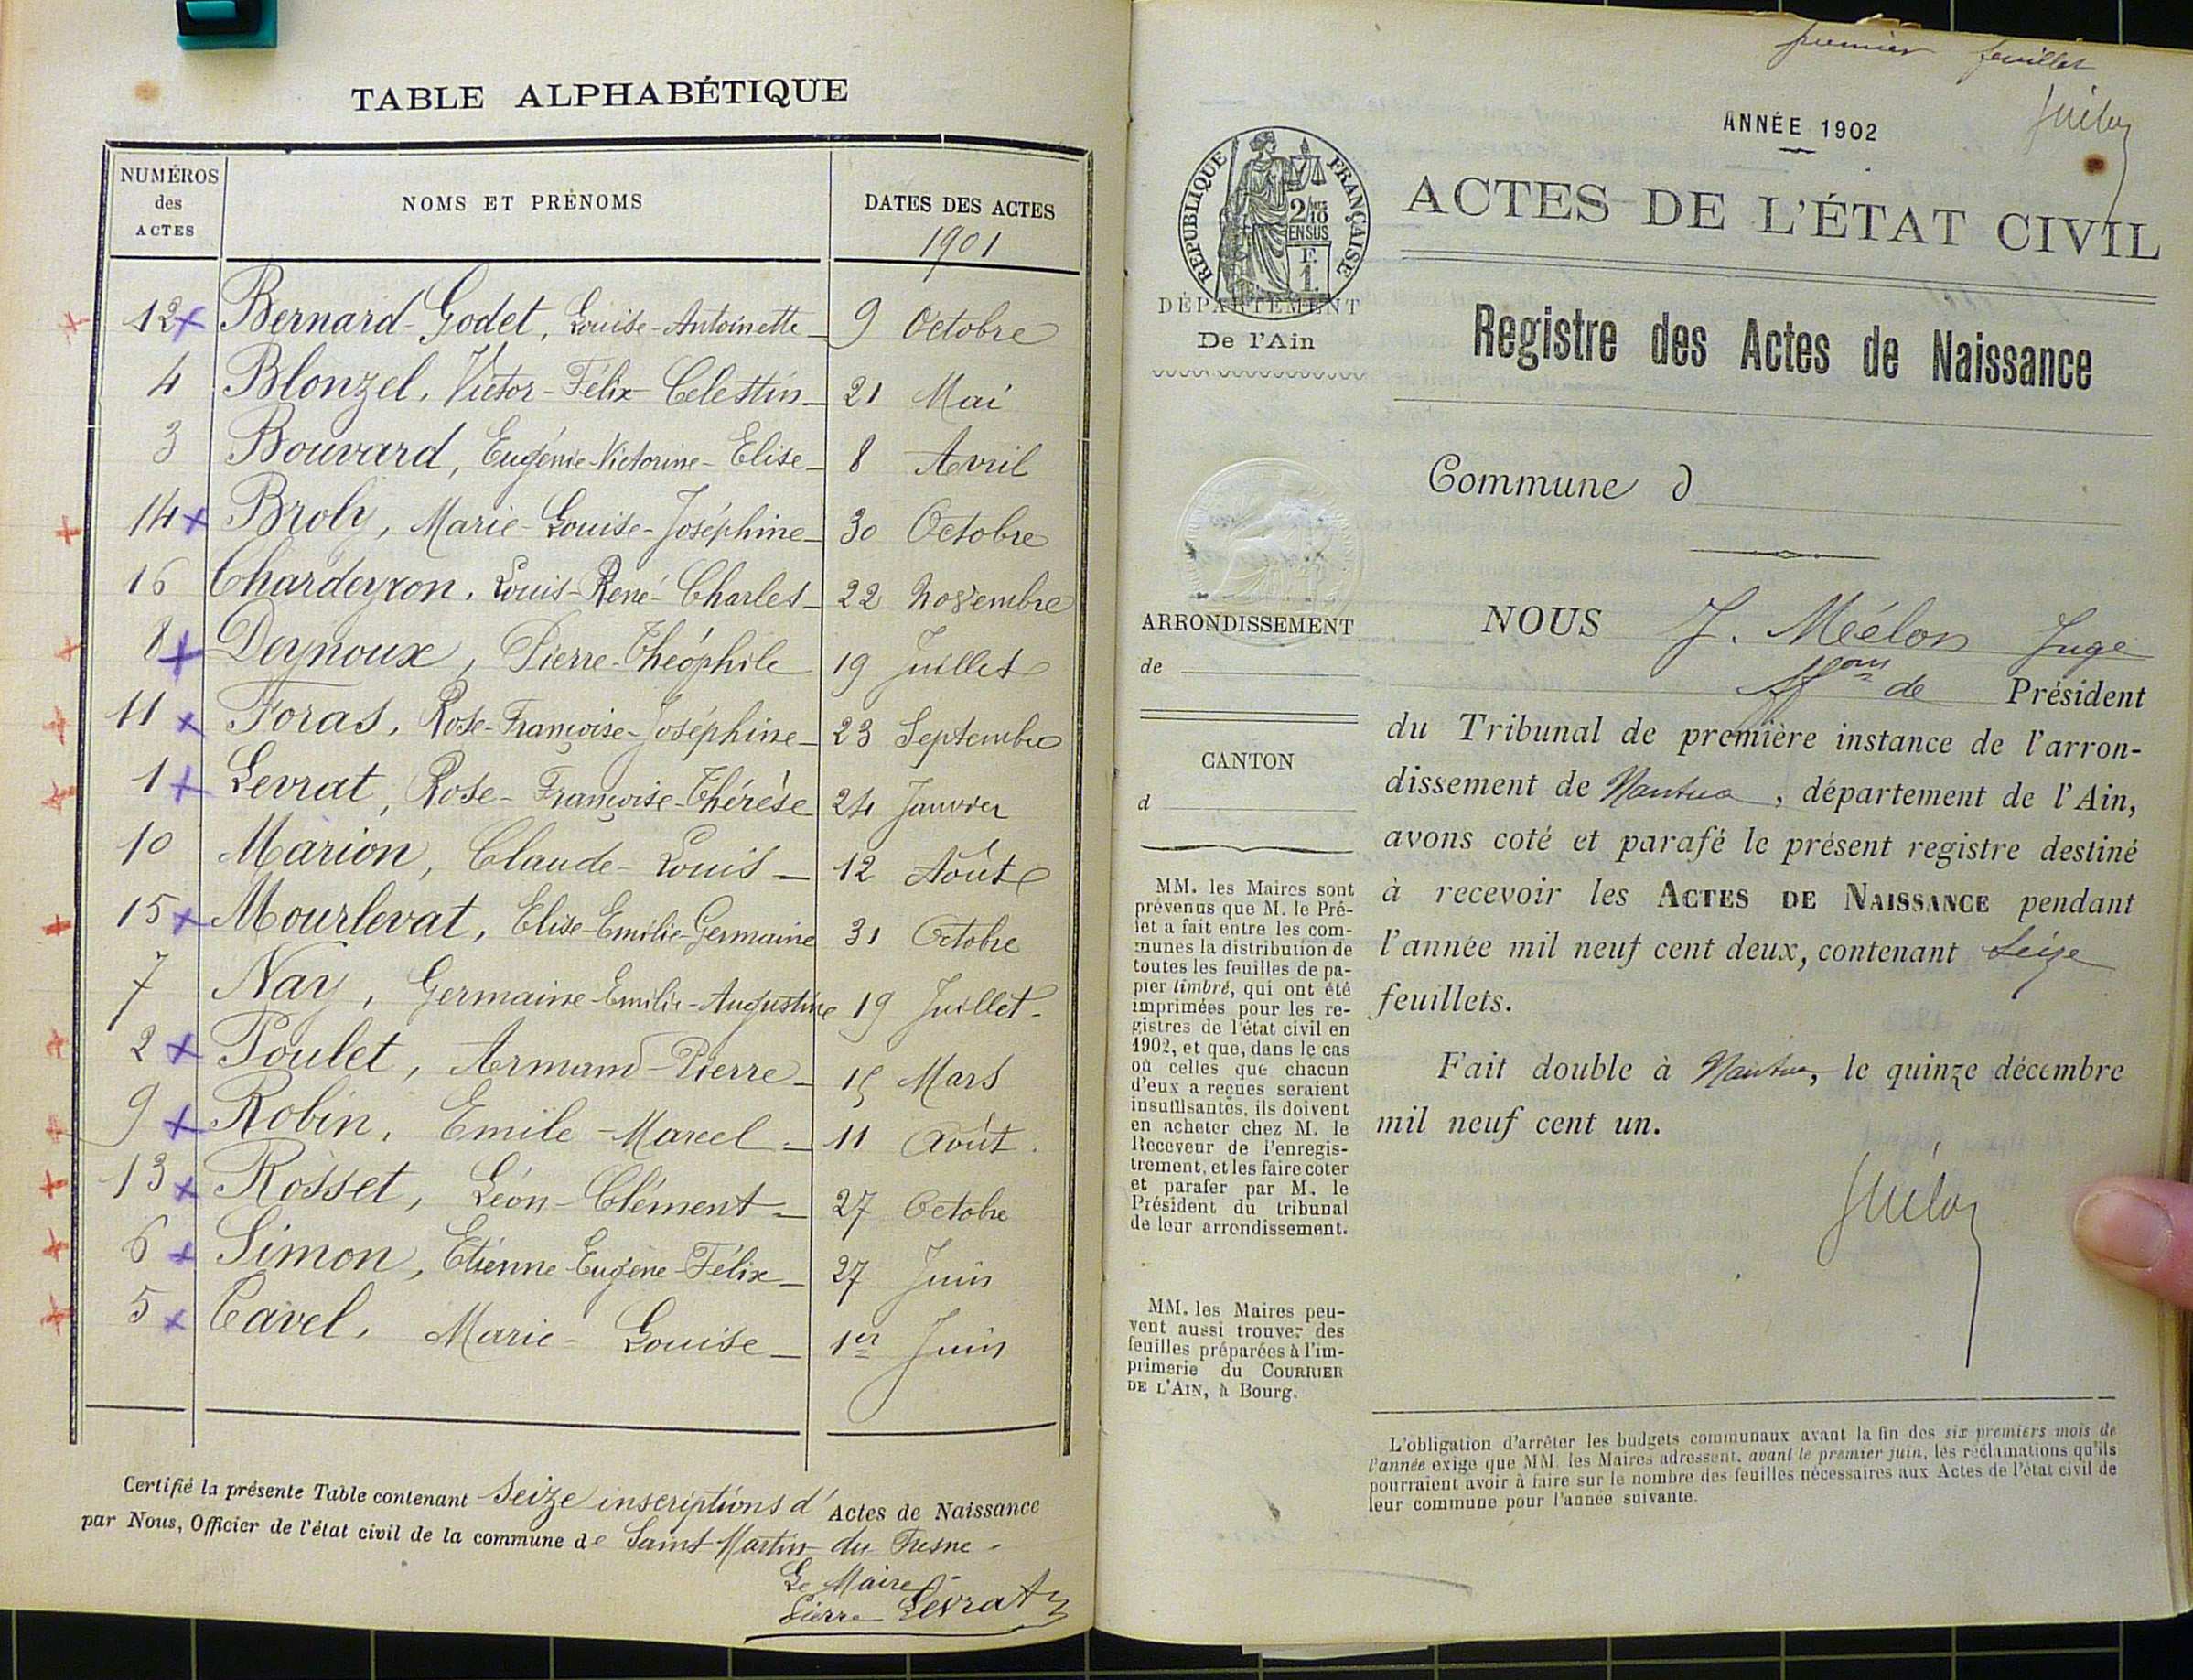 TABLE ALPHABÉTIQUE
NUMÉROS
des
ACTES
NOMS ET PRÉNOMS
DATES DES ACTES
1901
12 Bernard-Godet, Louise-Antoinette 9 Octobre
4 Blonzel, Victor-Félix-Célestin 21 Mai
3 Bouvard, Eugénie-Victorine-Elise 8 Avril
14 Broly, Marie-Louise-Joséphine 30 Octobre
16 Chardeyron, Louis-René-Charles 22 Novembre
8 Deynoux, Pierre-Théophile 19 Juillet
11 Foras, Rose-Françoise-Joséphine 23 Septembre
1 Levrat, Rose-Françoise-Thérèse 24 Janvier
10 Marion, Claude-Louis 12 Août
15 Mourlevat, Elise-Emilie-Germaine 31 Octobre
7 Nay, Germaine-Emilie-Augustine 19 Juillet
2 Poulet, Armand-Pierre 15 Mars
9 Robin, Emile-Marcel 11 Août
13 Rosset, Léon-Clément 27 Octobre
6 Simon, Etienne-Eugène-Félix 27 Juin
5 Tavel, Marie-Louise 1er Juin
Certifié la présente Table contenant Seize inscriptions d' Actes de Naissance
par Nous, Officier de l'état civil de la commune de Saint-Martin du Fresne
Le Maire
Pierre Levrat
premier feuillet
ANNÉE 1902
RÉPUBLIQUE FRANÇAISE
2/10
EN SUS
F.
1.
ACTES DE L'ÉTAT CIVIL
DÉPARTEMENT
De l'Ain
Registre des Actes de Naissance
Commune d
ARRONDISSEMENT
de
CANTON
d
NOUS J. Méélon Juge
de Président
du Tribunal de première instance de l'arron-
dissement de Nantua, département de l'Ain,
avons coté et parafé le présent registre destiné
à recevoir les ACTES DE NAISSANCE pendant
l'année mil neuf cent deux, contenant Seize
feuillets.
Fait double à Nantua, le quinze décembre
mil neuf cent un.
MM. les Maires sont
prévenus que M. le Pré-
fet a fait entre les com-
munes la distribution de
toutes les feuilles de pa-
pier timbré, qui ont été
imprimées pour les re-
gistres de l'état civil en
1902, et que, dans le cas
où celles que chacun
d'eux a reçues seraient
insuffisantes, ils doivent
en acheter chez M. le
Receveur de l'enregis-
trement, et les faire coter
et parafer par M. le
Président du tribunal
de leur arrondissement.
MM. les Maires peu-
vent aussi trouver des
feuilles préparées à l'im-
primerie du COURRIER
DE L'AIN, à Bourg.
L'obligation d'arrêter les budgets communaux avant la fin des six premiers mois de
l'année exige que MM. les Maires adressent, avant le premier juin, les réclamations qu'ils
pourraient avoir à faire sur le nombre des feuilles nécessaires aux Actes de l'état civil de
leur commune pour l'année suivante.